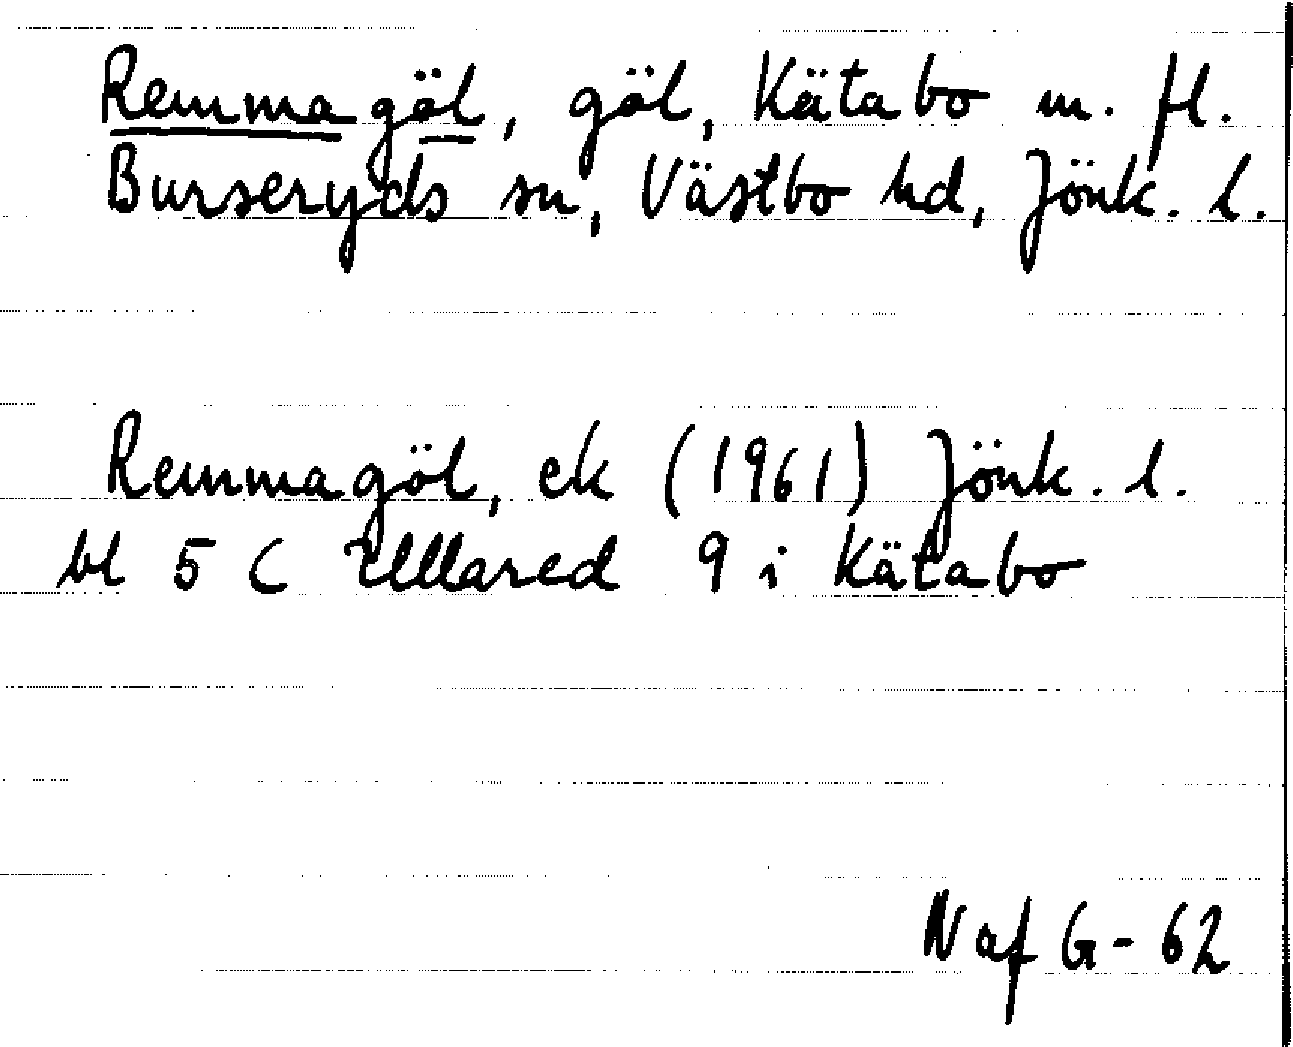 Remmagöl, göl, Kätabo m. fl.
Burseryds sn, Västbo hd, Jönk. l.
Remmagöl, ek (1961) Jönk. l.
bl 5 C Ullared 9 i Kätabo
N af G-62